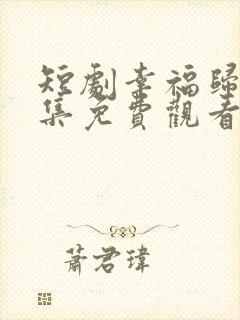 短劇幸福歸
集免費觀看
蕭君瑋